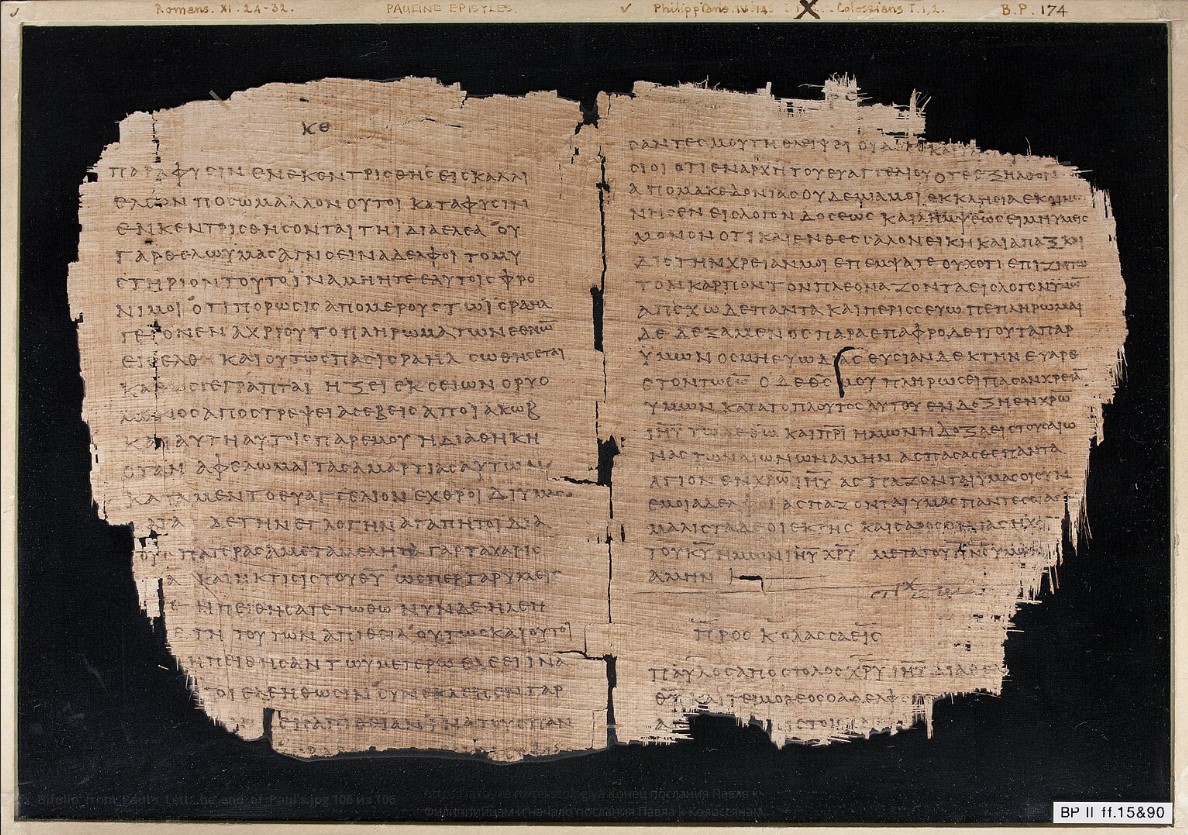 Romans. XI. 24-32. PAULINE EPISTLES. Philippians. IV. 14. Colossians I. 1, 2. B.P. 174
ΚΘ
ΠΑΡΑΦΥϹΙΝ ΕΝΕΚΕΝΤΡΙϹΘΗϹ ΕΙϹ ΚΑΛΛΙ
ΕΛΕΟΝ ΠΟϹΩ ΜΑΛΛΟΝ ΟΥΤΟΙ ΚΑΤΑ ΦΥϹΙΝ
ΕΝΚΕΝΤΡΙϹΘΗϹΟΝΤΑΙ ΤΗΙ ΙΔΙΑ ΕΛΕΑ ΟΥ
ΓΑΡ ΘΕΛΩ ΫΜΑϹ ΑΓΝΟΕΙΝ ΑΔΕΛΦΟΙ ΤΟ ΜΥ
ϹΤΗΡΙΟΝ ΤΟΥΤΟ ΪΝΑ ΜΗ ΗΤΕ ΕΑΥΤΟΙϹ ΦΡΟ
ΝΙΜΟΙ ΟΤΙ ΠΟΡΩϹΙϹ ΑΠΟ ΜΕΡΟΥϹ ΤΩΙ ΙϹΡΑΗΛ
ΓΕΓΟΝΕΝ ΑΧΡΙ ΟΥ ΤΟ ΠΛΗΡΩΜΑ ΤΩΝ ΕΘΝΩ̅
ΕΙϹΕΛΘ ΚΑΙ ΟΥΤΩϹ ΠΑϹ ΙϹΡΑΗΛ ϹΩΘΗϹΕΤΑΙ
ΚΑΘΩϹ ΓΕΓΡΑΠΤΑΙ ΗΞΕΙ ΕΚ ϹΕΙΩΝ Ο ΡΥΟ
ΜΕΝΟϹ ΑΠΟϹΤΡΕΨΕΙ ΑϹΕΒΕΙϹ ΑΠΟ ΪΑΚΩΒ
ΚΑΙ ΑΥΤΗ ΑΥΤΟΙϹ ΠΑΡ ΕΜΟΥ Η ΔΙΑΘΗΚΗ
ΟΤΑΝ ΑΦΕΛΩΜΑΙ ΤΑϹ ΑΜΑΡΤΙΑϹ ΑΥΤΩΝ
ΚΑΤΑ ΜΕΝ ΤΟ ΕΥΑΓΓΕΛΙΟΝ ΕΧΘΡΟΙ ΔΙ ΥΜΑϹ
ΑΤΑ ΔΕ ΤΗΝ ΕΓΛΟΓΗΝ ΑΓΑΠΗΤΟΙ ΔΙΑ
ΠΑΤΕΡΑϹ ΑΜΕΤΑΜΕΛΗΤΑ ΓΑΡ ΤΑ ΧΑΡΙϹ
ΚΑΙ Η ΚΤΙϹΙϹ ΤΟΥ Θ̅Υ̅ ΩϹΠΕΡ ΓΑΡ ΥΜΕΙϹ
ΗΠΕΙΘΗϹΑΤΕ ΤΩ Θ̅Ω̅ ΝΥΝ ΔΕ ΗΛΕΗ
ΤΗ ΤΟΥΤΩΝ ΑΠΙΘΕΙΑ ΟΥΤΩϹ ΚΑΙ ΟΥΤΟΙ
ΗΠΕΙΘΗϹΑΝ ΤΩ ΥΜΕΤΕΡΩ ΕΛΕΕΙ ΪΝΑ
ΤΟΙ ΕΛΕΗΘΩϹΙΝ ϹΥΝΕΚΛΕΙϹΕΝ ΓΑΡ
ΕΙϹ ΑΠΙΘΕΙΑΝ ΪΝΑ ΤΟΥϹ ΠΑΝ
ϹΑΝΤΕϹ ΜΟΥ ΤΗ ΘΛΕΙΨΕΙ
ϹΙΟΙ ΟΤΙ ΕΝ ΑΡΧΗ ΤΟΥ ΕΥΑΓΓΕΛΙΟΥ ΟΤΕ ΕΞΗΛΘΟΝ
ΑΠΟ ΜΑΚΕΔΟΝΙΑϹ ΟΥΔΕΜΙΑ ΜΟΙ ΕΚΚΛΗϹΙΑ ΕΚΟΙΝΩ
ΝΗϹΕΝ ΕΙϹ ΛΟΓΟΝ ΔΟϹΕΩϹ ΚΑΙ ΛΗΜΨΕΩϹ ΕΙ ΜΗ ΥΜΕΙϹ
ΜΟΝΟΝ ΟΤΙ ΚΑΙ ΕΝ ΘΕϹϹΑΛΟΝΕΙΚΗ ΚΑΙ ΑΠΑΞ ΚΑΙ
ΔΙϹ ΤΗΝ ΧΡΕΙΑΝ ΜΟΙ ΕΠΕΜΨΑΤΕ ΟΥΧ ΟΤΙ ΕΠΙΖΗΤΩ
ΤΟΝ ΚΑΡΠΟΝ ΤΟΝ ΠΛΕΟΝΑΖΟΝΤΑ ΕΙϹ ΛΟΓΟΝ ΥΜΩ
ΑΠΕΧΩ ΔΕ ΠΑΝΤΑ ΚΑΙ ΠΕΡΙϹϹΕΥΩ ΠΕΠΛΗΡΩΜΑΙ
ΔΕ ΔΕΞΑΜΕΝΟϹ ΠΑΡΑ ΕΠΑΦΡΟΔΕΙΤΟΥ ΤΑ ΠΑΡ
ΫΜΩΝ ΟϹΜΗ ΕΥΩΔΙΑϹ ΘΥϹΙΑΝ ΔΕΚΤΗΝ ΕΥΑΡΕ
ϹΤΟΝ ΤΩ Θ̅Ω̅ Ο ΔΕ Θ̅Ϲ̅ ΜΟΥ ΠΛΗΡΩϹΕΙ ΠΑϹΑΝ ΧΡΕΙΑ
ΥΜΩΝ ΚΑΤΑ ΤΟ ΠΛΟΥΤΟϹ ΑΥΤΟΥ ΕΝ ΔΟΞΗ ΕΝ Χ̅Ρ̅Ω̅
Ι̅Η̅Υ̅ ΤΩ ΔΕ Θ̅Ω̅ ΚΑΙ Π̅Ρ̅Ι̅ ΗΜΩΝ Η ΔΟΞΑ ΕΙϹ ΤΟΥϹ ΑΙΩ
ΝΑϹ ΤΩΝ ΑΙΩΝΩΝ ΑΜΗΝ ΑϹΠΑϹΑϹΘΕ ΠΑΝΤΑ
ΑΓΙΟΝ ΕΝ Χ̅Ρ̅Ω̅ Ι̅Η̅Υ̅ ΑϹΠΑΖΟΝΤΑΙ ΥΜΑϹ ΟΙ ϹΥΝ
ΕΜΟΙ ΑΔΕΛ ΟΙ ΑϹΠΑΖΟΝΤΑΙ ΥΜΑϹ ΠΑΝΤΕϹ
ΜΑΛΙϹΤΑ ΔΕ ΟΙ ΕΚ ΤΗϹ ΚΑΙϹΑΡΟϹ ΟΙΚΙΑϹ Η Χ
ΤΟΥ Κ̅Υ̅ ΗΜΩΝ Ι̅Η̅Υ̅ Χ̅Ρ̅Υ̅ ΜΕΤΑ ΤΟΥ Π̅Ν̅Ϲ̅ ΥΜΩ
ΑΜΗΝ
ΠΡΟϹ ΚΟΛΑϹϹΑΕΙϹ
ΠΑΥΛΟϹ ΑΠΟϹΤΟΛΟϹ Χ̅Ρ̅Υ̅ Ι̅Η̅Υ̅ ΔΙΑ ΘΕ
Θ̅Υ̅ ΚΑΙ ΤΕΙΜΟΘΕΟϹ Ο ΑΔΕΛΦ
BP II ff.15&90